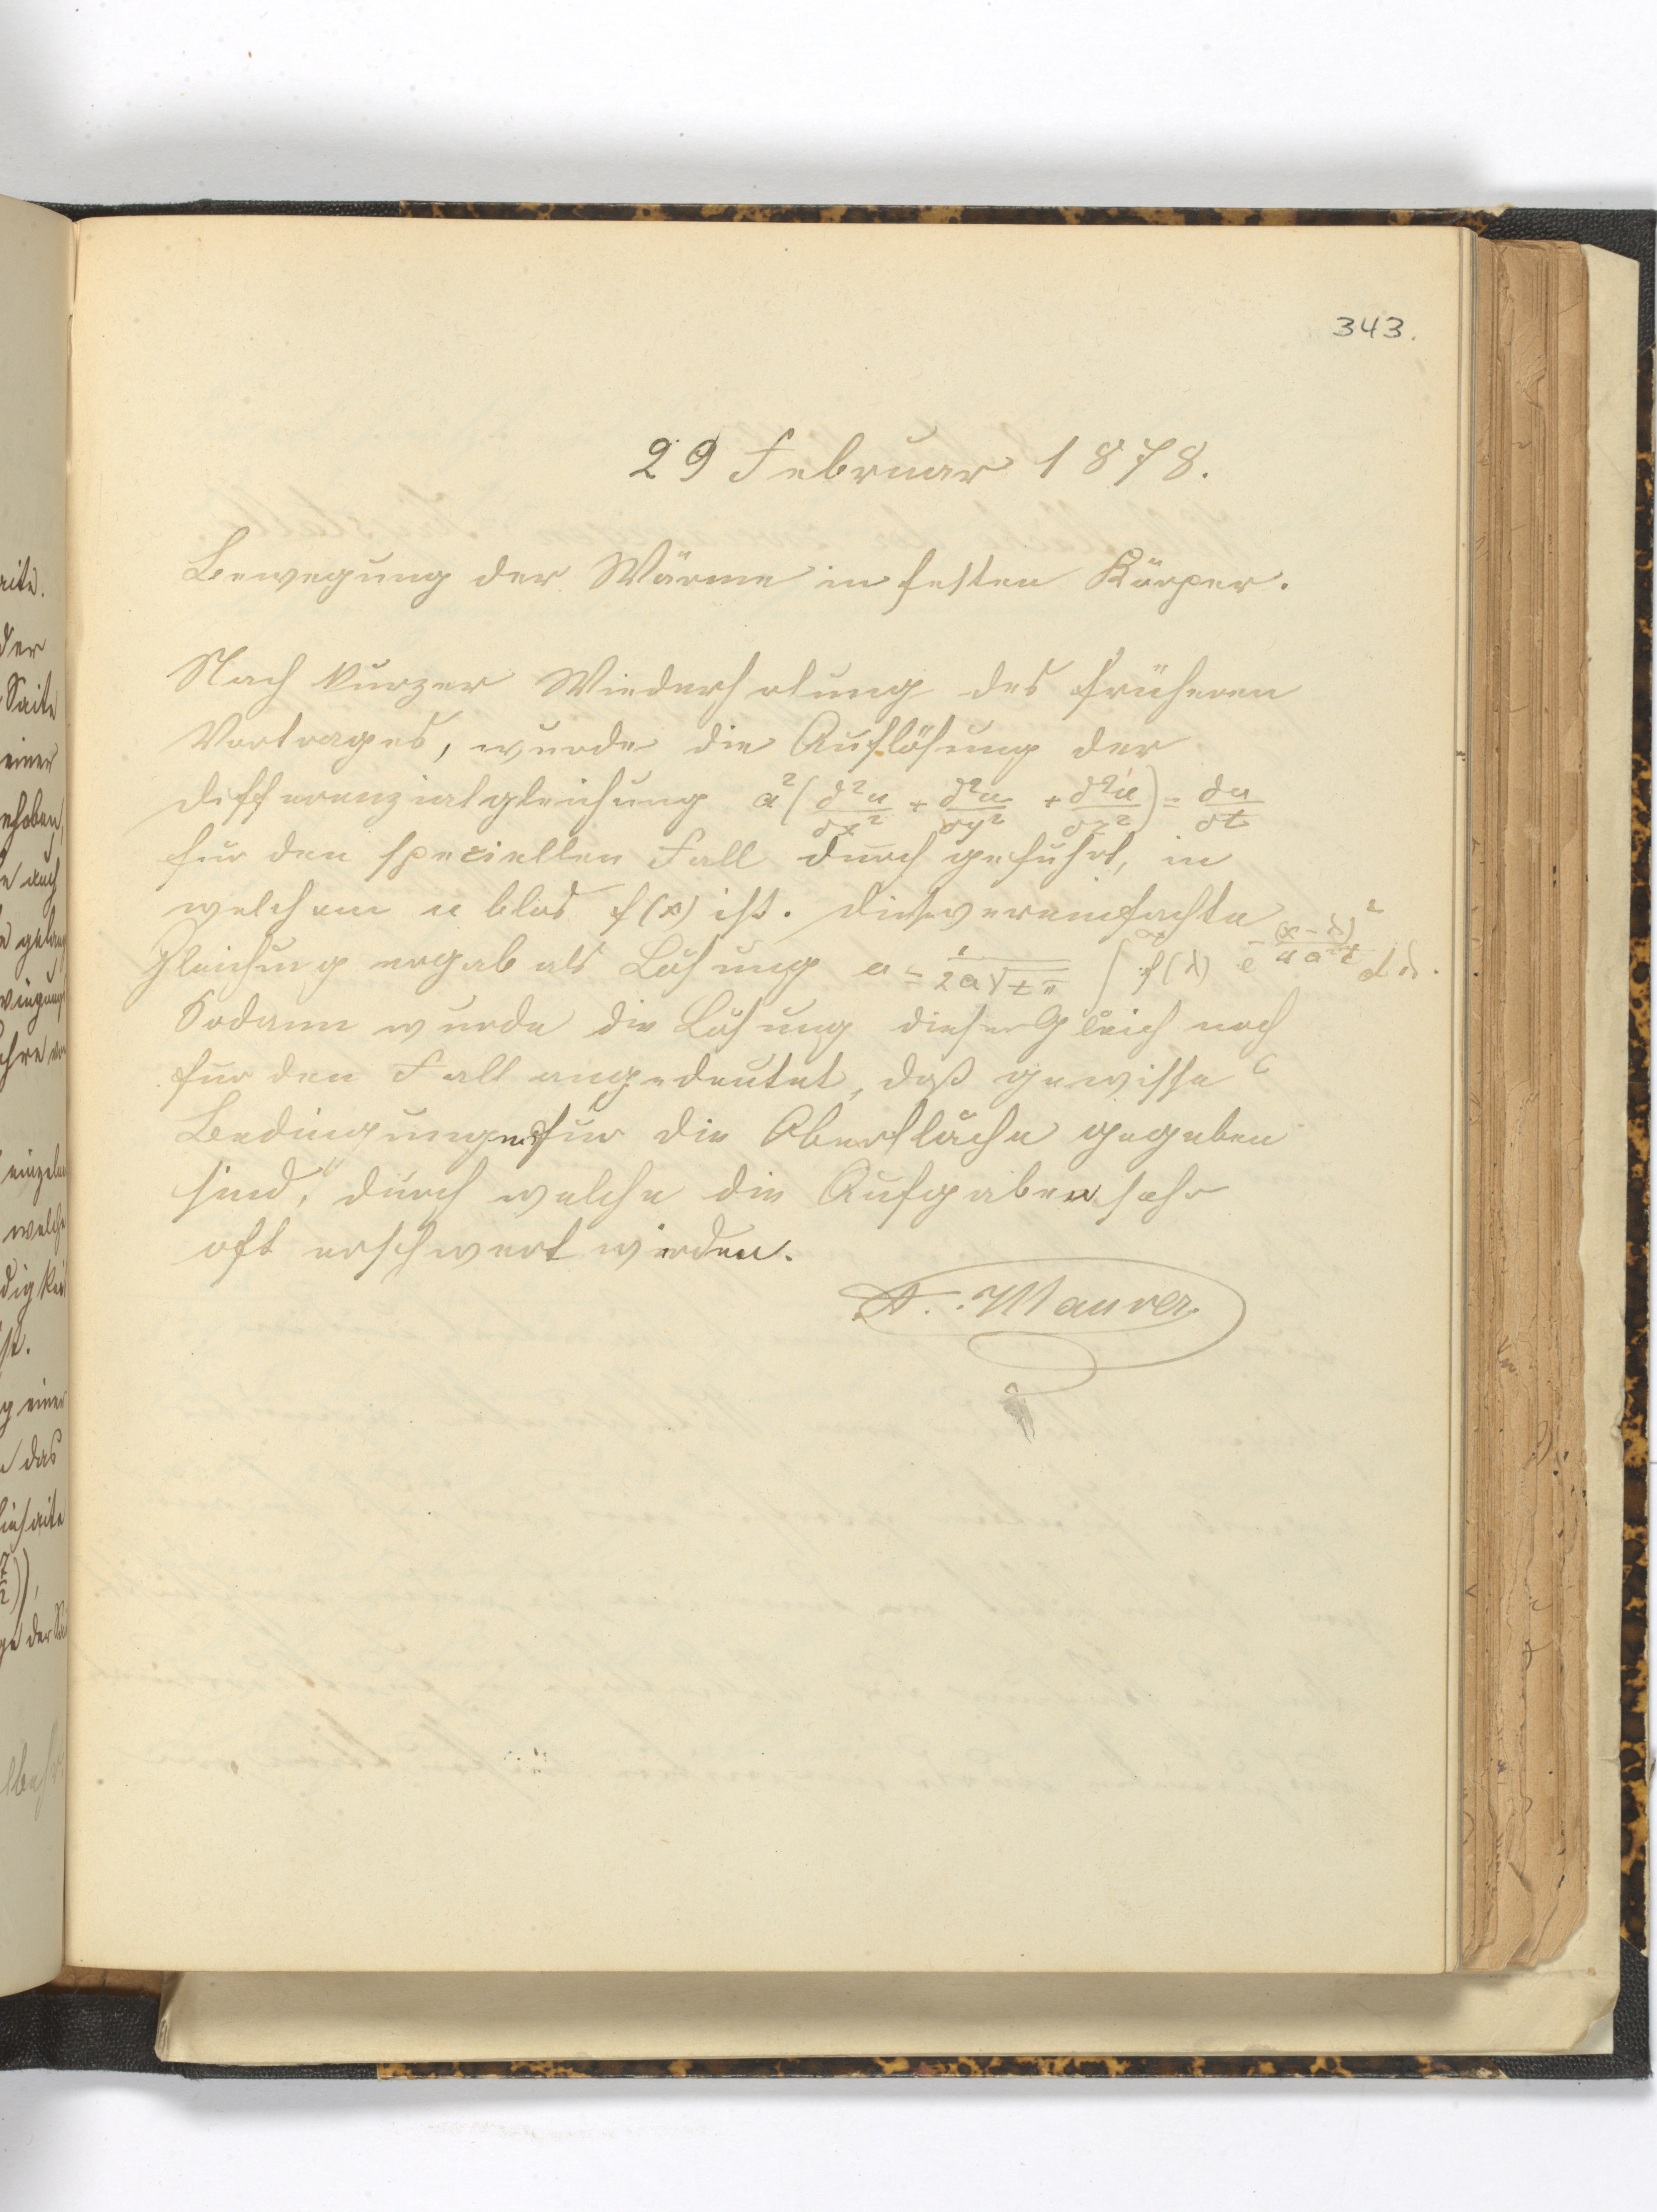 343.
29 Februar 1878.
Bewegung der Wärme in festen Körper.
Nach kurzer Wiederholung des früheren
Vortrages, wurde die Auflösung der
Differenzialgleichung a²(∂²u/∂x² + ∂²u/∂y² + ∂²u/∂z²) = ∂u/∂t
für den speciellen Fall durch geführt, in
welchem u blos f(x) ist. Diese vereinfachte
Gleichung ergab als Lösung u = 1/(2a√tπ) ∫ f(λ) e^(-(x-λ)²/4a²t) dλ.
Sodann wurde die Lösung dieser Gleich noch
für den Fall angedeutet, daß gewisse
Bedingungen für die Oberfläche gegeben
sind, durch welche die Aufgaben sehr
oft erschwert werden.
A. Maurer